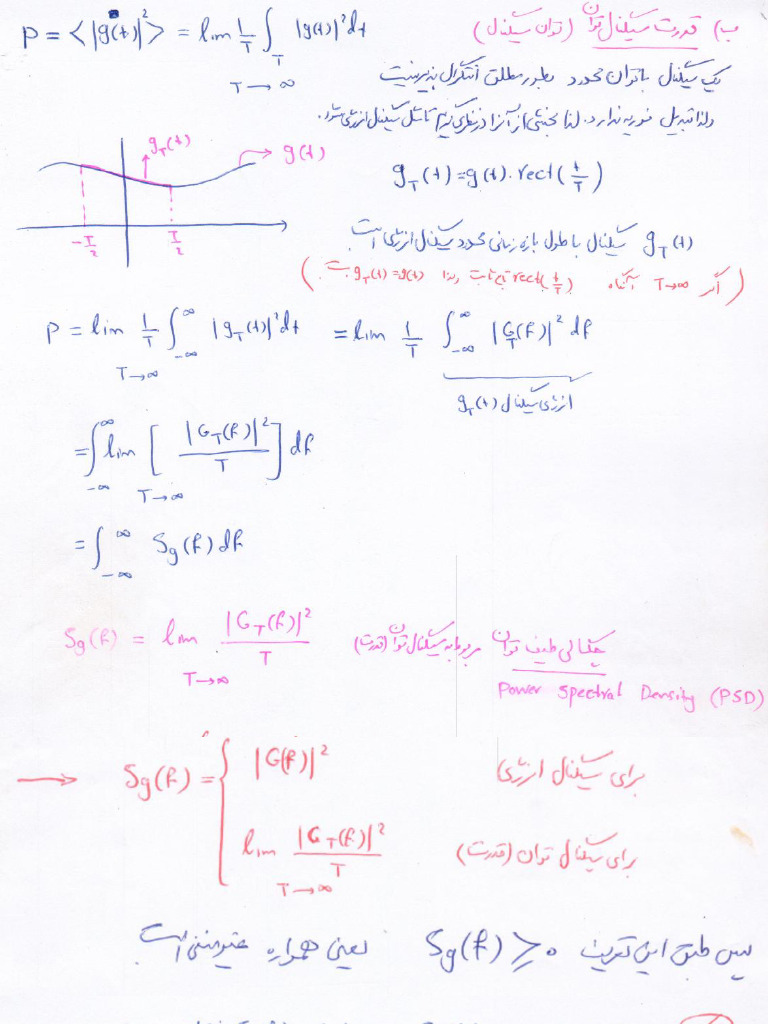 ب) قدرت سیگنال توان (توان سیگنال)
P = < |g(t)|² > = lim 1/T ∫_T |g(t)|² dt
T → ∞
یک سیگنال با توان محدود بطور مطلق انتگرال پذیر نیست
ولذا تبدیل فوریه ندارد. لذا بخشی از آنرا در نظر می‌گیریم تا شکل سیگنال انرژی شود.
g_T(t) g(t)
g_T(t) = g(t) . rect(t/T)
-T/2 T/2
g_T(t) سیگنال با طول بازه زمانی محدود سیگنال انرژی است
(اگر T→∞ آنگاه rect(t/T) تابع ثابت و لذا g_T(t)=g(t) است)
P = lim 1/T ∫_{-∞}^{∞} |g_T(t)|² dt = lim 1/T ∫_{-∞}^{∞} |G_T(f)|² df
T→∞
انرژی سیگنال g_T(t)
= ∫_{-∞}^{∞} lim [ |G_T(f)|² / T ] df
T→∞
= ∫_{-∞}^{∞} S_g(f) df
S_g(f) = lim |G_T(f)|² / T چگالی طیف توان مربوط به سیگنال توان (قدرت)
T→∞
Power Spectral Density (PSD)
→ S_g(f) = { |G(f)|² برای سیگنال انرژی
lim |G_T(f)|² / T برای سیگنال توان (قدرت)
T→∞
پس طبق این تعریف S_g(f) ≥ 0 یعنی همواره غیرمنفی است